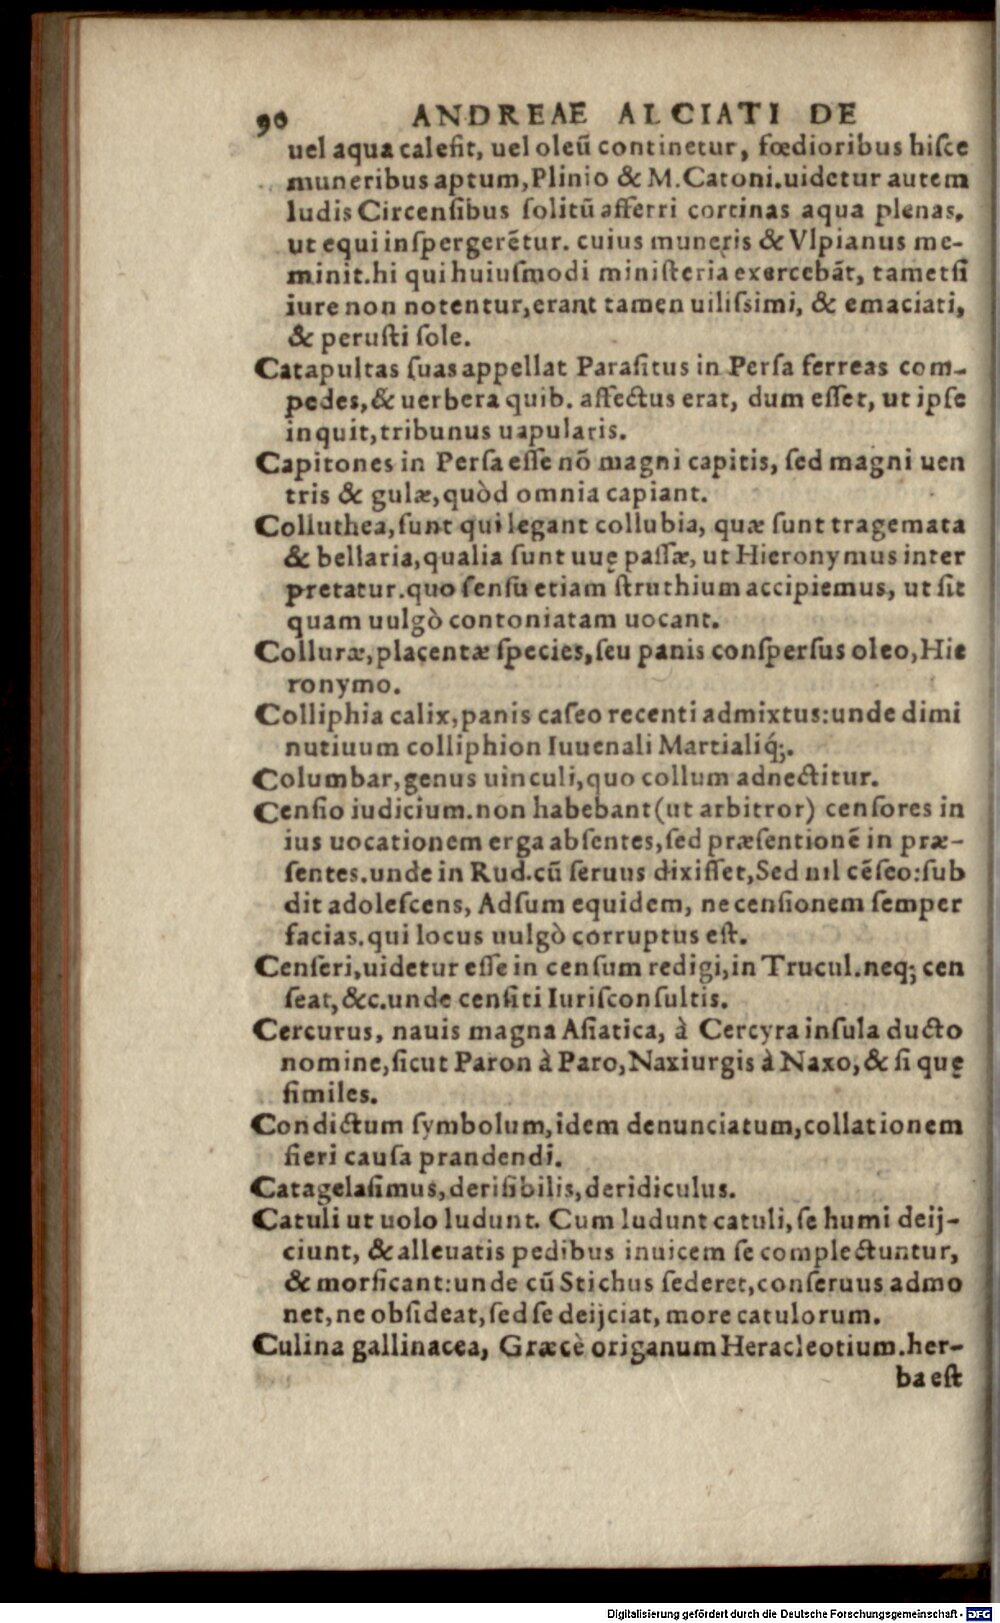 90 ANDREAE ALCIATI DE
uel aqua calefit, uel oleũ continetur, fœdioribus hiſce
muneribus aptum, Plinio & M. Catoni. uidetur autem
ludis Circenſibus ſolitũ afferri cortinas aqua plenas,
ut equi inſpergerẽtur. cuius muneris & Vlpianus me-
minit. hi qui huiuſmodi miniſteria exercebãt, tametſi
iure non notentur, erant tamen uiliſsimi, & emaciati,
& peruſti ſole.
Catapultas ſuas appellat Paraſitus in Perſa ferreas com-
pedes, & uerbera quib. affectus erat, dum eſſet, ut ipſe
inquit, tribunus uapularis.
Capitones in Perſa eſſe nõ magni capitis, ſed magni uen
tris & gulæ, quòd omnia capiant.
Colluthea, ſunt qui legant collubia, quæ ſunt tragemata
& bellaria, qualia ſunt uuę paſſæ, ut Hieronymus inter
pretatur. quo ſenſu etiam ſtruthium accipiemus, ut ſit
quam uulgò contoniatam uocant.
Colluræ, placentæ ſpecies, ſeu panis conſperſus oleo, Hie
ronymo.
Colliphia calix, panis caſeo recenti admixtus: unde dimi
nutiuum colliphion Iuuenali Martialiq́;.
Columbar, genus uinculi, quo collum adnectitur.
Cenſio iudicium. non habebant (ut arbitror) cenſores in
ius uocationem erga abſentes, ſed præſentionẽ in præ-
ſentes. unde in Rud. cũ ſeruus dixiſſet, Sed nil cẽſeo: ſub
dit adoleſcens, Adſum equidem, ne cenſionem ſemper
facias. qui locus uulgò corruptus eſt.
Cenſeri, uidetur eſſe in cenſum redigi, in Trucul. neq; cen
ſeat, &c. unde cenſiti Iuriſconſultis.
Cercurus, nauis magna Aſiatica, à Cercyra inſula ducto
nomine, ſicut Paron à Paro, Naxiurgis à Naxo, & ſi quę
ſimiles.
Condictum ſymbolum, idem denunciatum, collationem
fieri cauſa prandendi.
Catagelaſimus, deriſibilis, deridiculus.
Catuli ut uolo ludunt. Cum ludunt catuli, ſe humi deij-
ciunt, & alleuatis pedibus inuicem ſe complectuntur,
& morſicant: unde cũ Stichus ſederet, conſeruus admo
net, ne obſideat, ſed ſe deijciat, more catulorum.
Culina gallinacea, Græcè origanum Heracleotium. her-
ba eſt
Digitalisierung gefördert durch die Deutsche Forschungsgemeinschaft - DFG